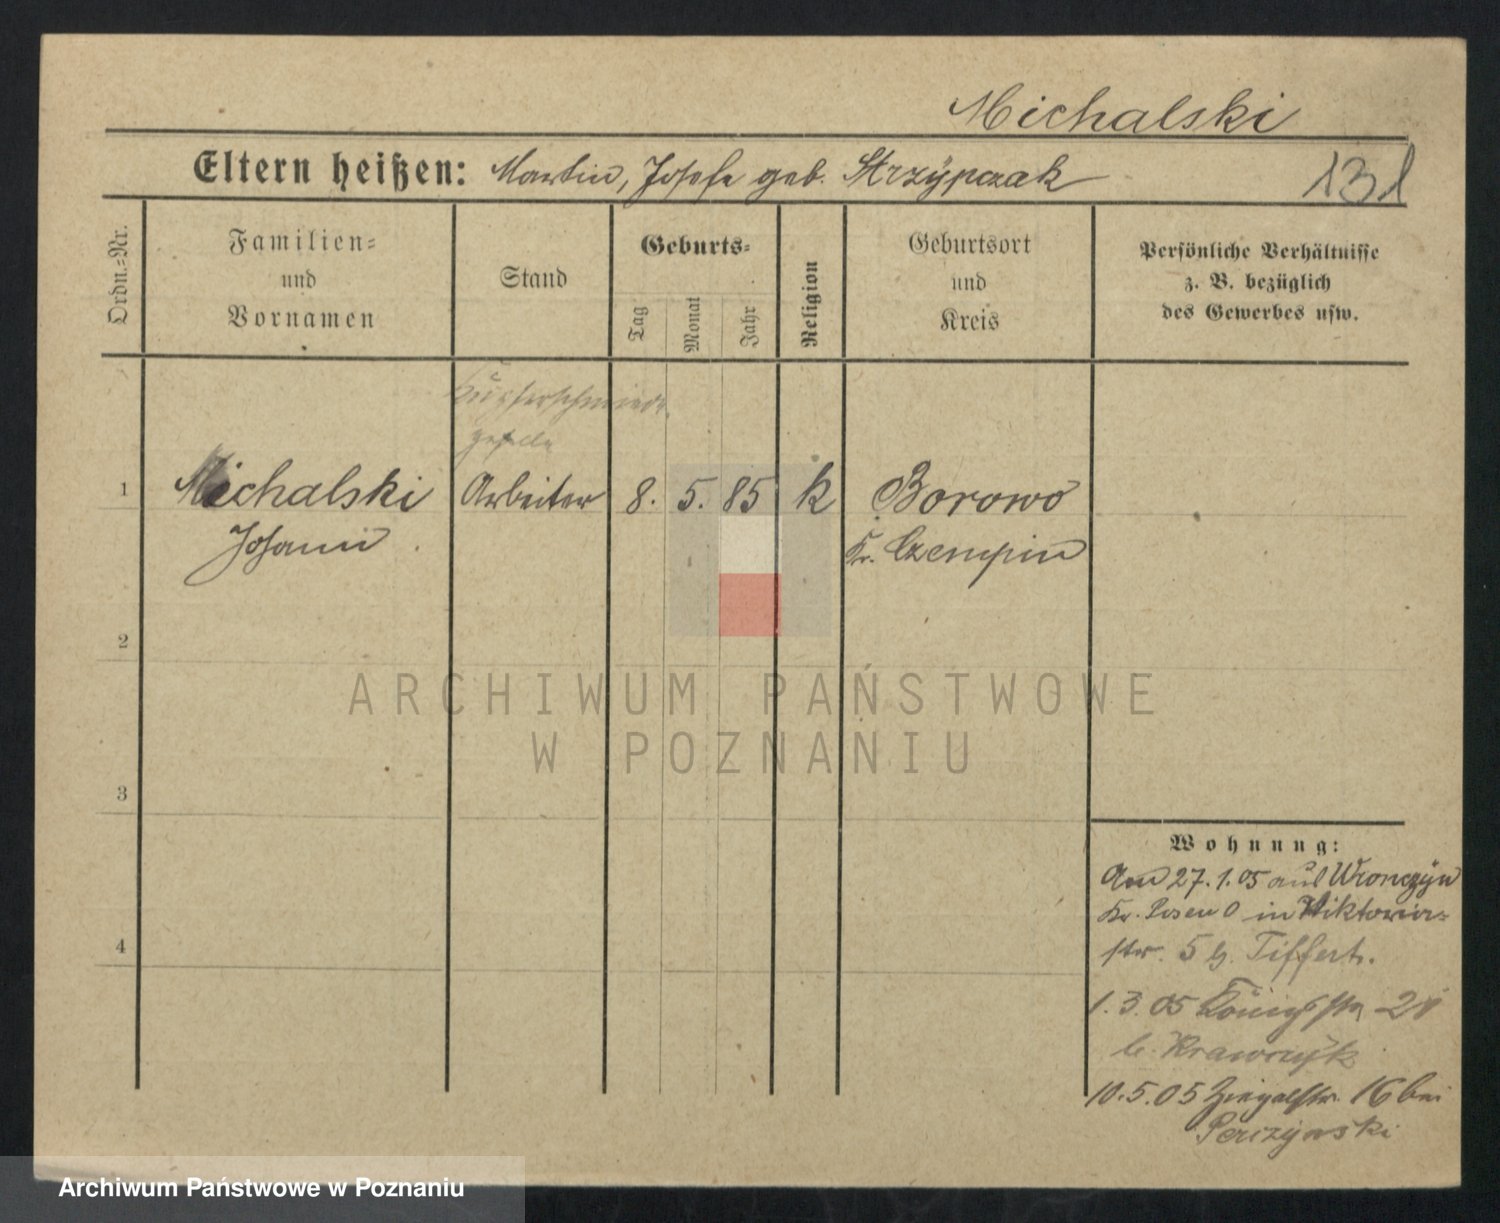 Michalski
Eltern heißen: Martin, Josefa geb. Strzÿpczak
131
Ordn.-Nr.
Familien-
und
Vornamen
Stand
Geburts-
Tag
Monat
Jahr
Religion
Geburtsort
und
Kreis
Persönliche Verhältnisse
z. B. bezüglich
des Gewerbes usw.
Kupferschmiede
geselle
1 Michalski Arbeiter 8. 5. 85 k Borowo
Johann Kr. Czempin
2
ARCHIWUM PAŃSTWOWE
W POZNANIU
3
Wohnung:
Am 27.1.05 aus Wronczÿn
Kr. Posen O in Viktoria-
str. 5 b. Tiffert.
4
1.3.05 Königstr
b. Krawczÿk
10.5.05 Ziegelstr. 16 bei
Perzÿnski
Archiwum Państwowe w Poznaniu